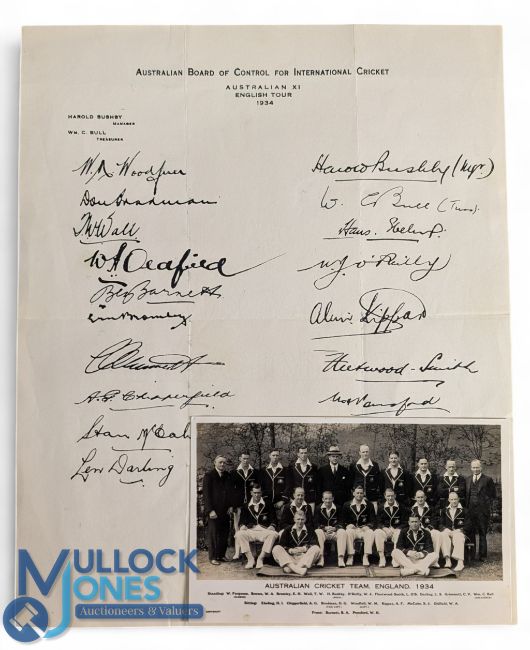 AUSTRALIAN BOARD OF CONTROL FOR INTERNATIONAL CRICKET
AUSTRALIAN XI
ENGLISH TOUR
1934
HAROLD BUSHBY
MANAGER
WM. C. BULL
TREASURER
W. M. Woodfull
Don Bradman
T. W. Wall
W A Oldfield
B A Barnett
E H Bromley
C V Grimmett
A. G. Chipperfield
Stan McCabe
Len Darling
Harold Bushby (Mgr.)
W. C Bull (Treas).
Hans. Ebeling.
W. J. O'Reilly
Alan Kippax
Fleetwood-Smith
W H Ponsford
AUSTRALIAN CRICKET TEAM, ENGLAND, 1934
MULLOCK
JONES
Auctioneers & Valuers